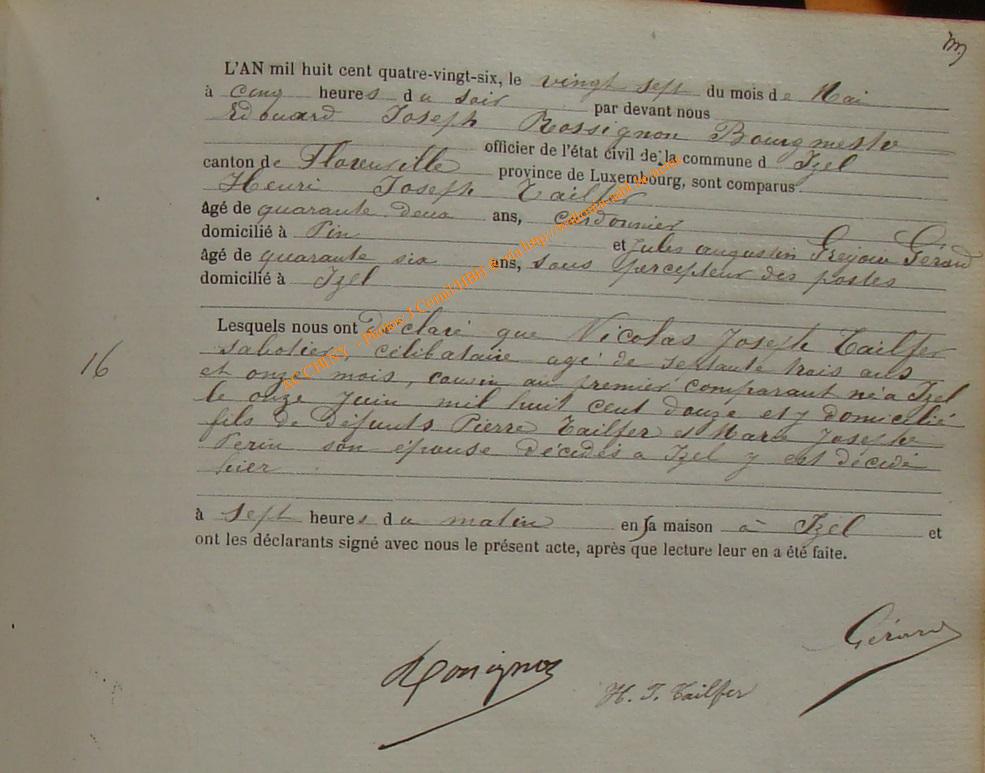 L'AN mil huit cent quatre-vingt-six, le vingt sept du mois de Mai
à cinq heures du soir par devant nous
Edouard Joseph Rossignon Bourgmestre
officier de l'état civil de la commune d Izel
canton de Florenville province de Luxembourg, sont comparus
Henri Joseph Tailfer
âgé de quarante deux ans, cordonnier
domicilié à Pin et Jules augustin Gérard
âgé de quarante six ans, sous percepteur des postes
domicilié à Izel
16
Lesquels nous ont Déclaré que Nicolas Joseph Tailfer
sabotier, célibataire agé de septante trois ans
et onze mois, cousin au premier comparant né à Izel
le onze Juin mil huit cent douze et y domicilié
fils de Défunts Pierre Tailfer et Marie Josephe
Perin son épouse décédés a Izel y est décédé
hier
à sept heures du matin en sa maison à Izel et
ont les déclarants signé avec nous le présent acte, après que lecture leur en a été faite.
Gérard
Rossignon
H. J. Tailfer